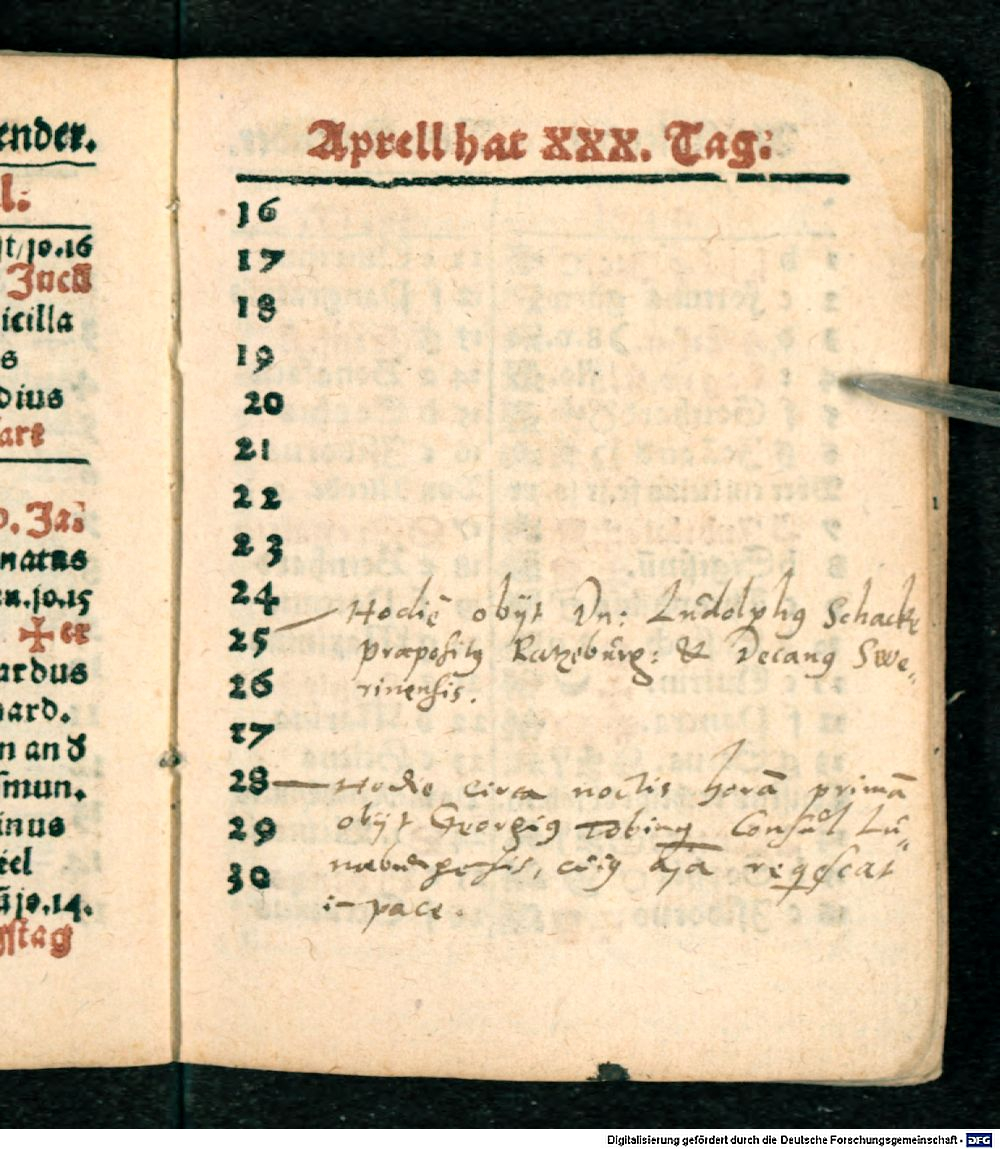 ender.
l:
st/jo.16
Jncu
icilla
s
dius
are
o. Jai
natus
en.jo.15
er
ardus
hard.
n and
smun.
inus
iel
jo.14.
gstag
Aprell hat XXX. Tag:
16
17
18
19
20
21
22
23
24
25
26
27
28
29
30
Hodiè obijt Dn: Ludolphus Schacke
præpositus Ratzeburg: & Decanus Swe-
rinensis.
Hodie circa noctis horā primā
obijt Georgius Tobing Consul Lu-
naeburgensis, cuius aĩa reqescat
in pace.
Digitalisierung gefördert durch die Deutsche Forschungsgemeinschaft - DFG